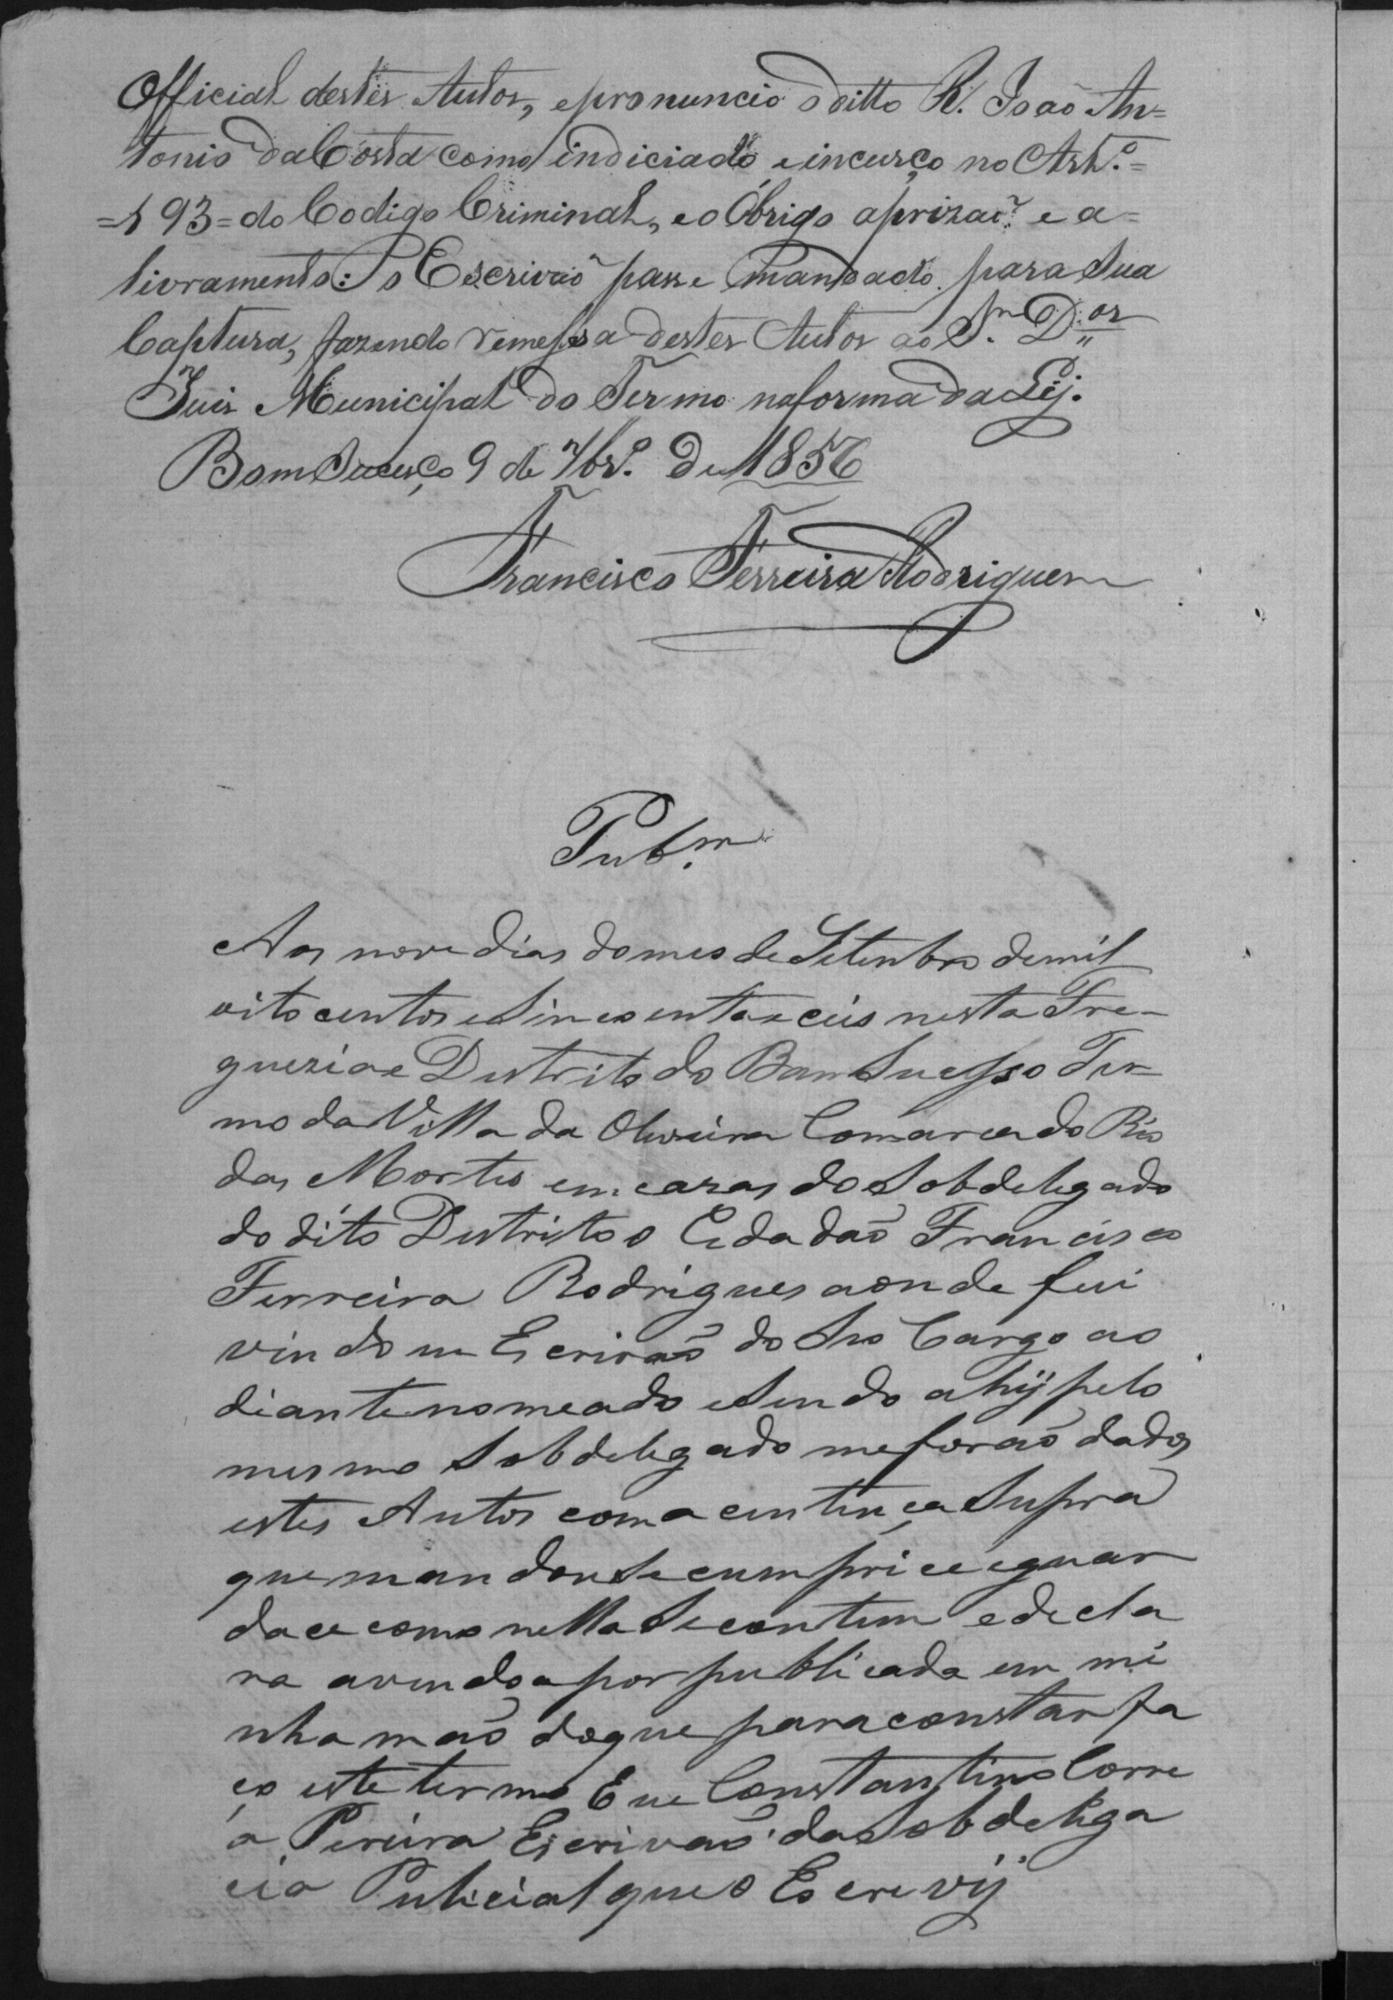 Official destes Autos, epronuncio o ditto R. Joaõ An=
tonio da Costa como indiciado, eincurço no Art.º=
=193= do Codigo Criminal, eo Obrigo aprizaõ e a=
livramento: O Escrivaõ passe Mandado para Sua
Captura, fazendo remessa destes Autos ao S.r D.or
Juis Municipal do Termo naforma da Lej.
BomSucesço 9 de 7br.º de 1856
Francisco Ferreira Rodrigues
Pub.m
Aos nove dias domes de Setenbro demil
oito centos eSincoenta eceis nesta Fre-
guezia e Distrito do Bom Sucesso Ter-
mo da Villa da Oliveira Comarca do Rio
das Mortes em cazas do Sobdelegado
do dito Distrito o Cidadaõ Francisco
Ferreira Rodrigues aonde fui
vindo eu Escrivaõ do Seo Cargo ao
diante nomeado eSendo ahij pelo
mesmo Sobdelegado meforaõ dados
estes Autos com a centença Supra
quemandou Se cumprice eguar
dace como nella Se contem edecla
ra avendoa por publicada em mi
nha maõ doque para constar fa
ço este termo Eu Constantino Corre
a Pereira Escrivaõ da Sobdeliga
cia Pulicial que o Escrevij